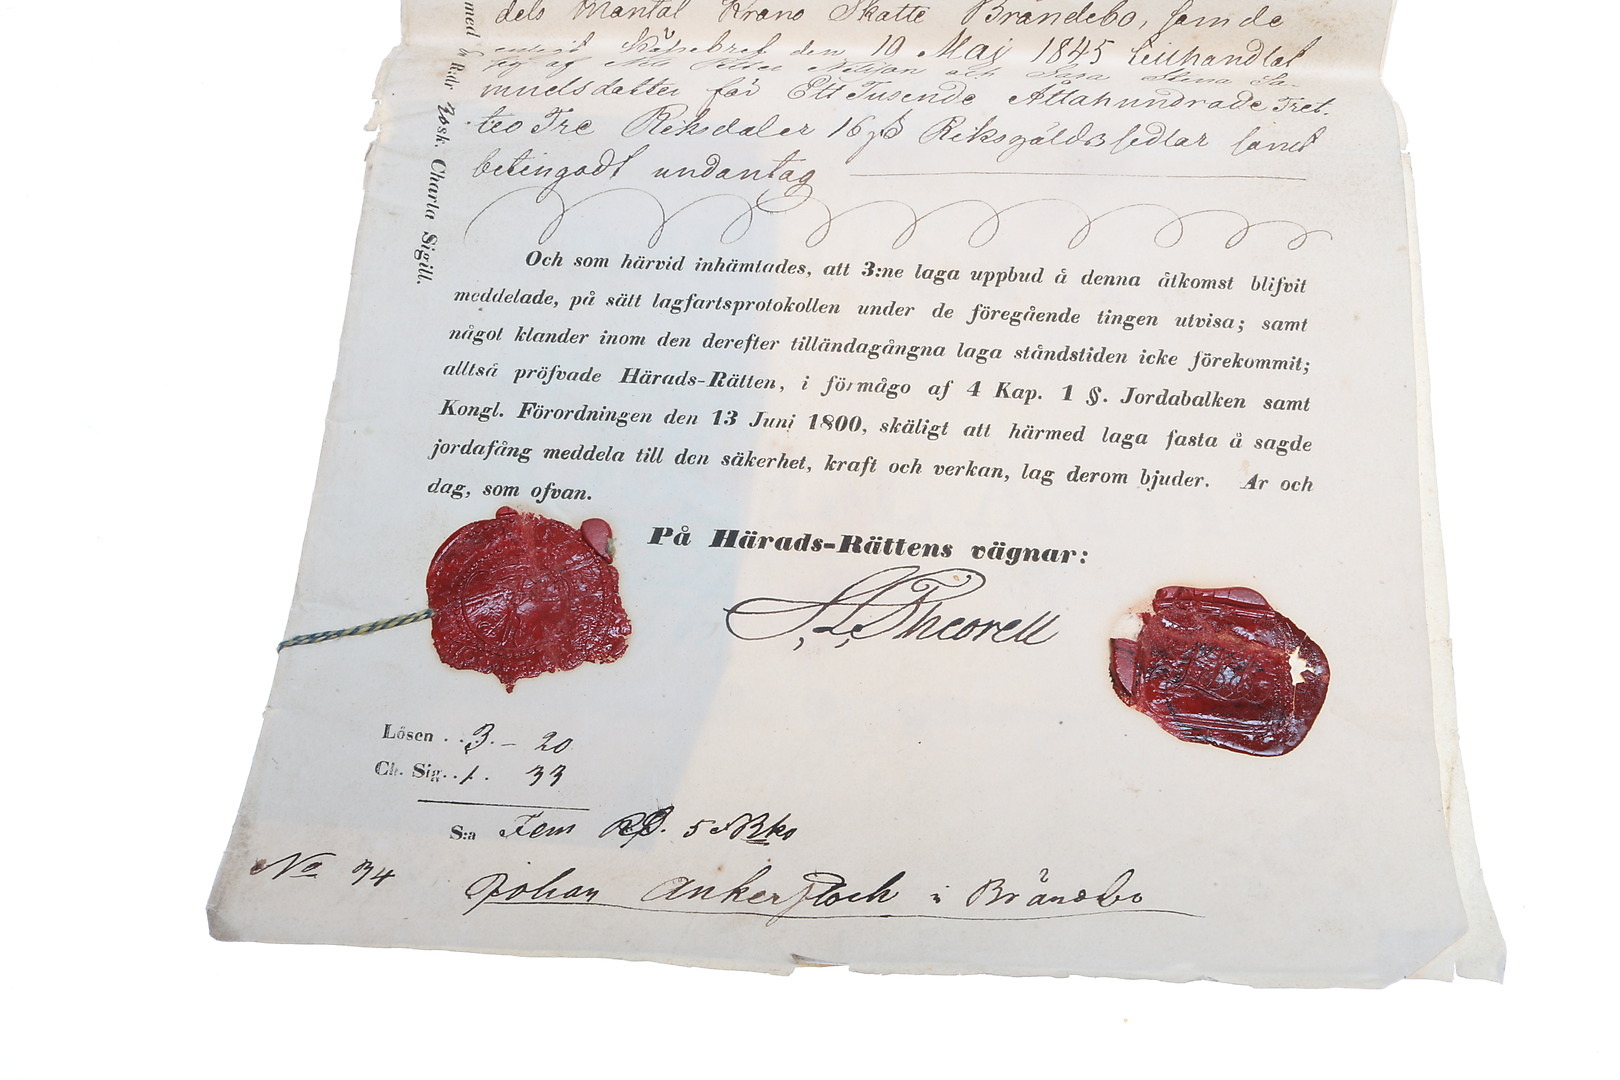 dels Mantal Krono Skatte Brändebo, som de
enligt Köpebref den 10 Maj 1845 tillhandlat
sig af Nils Peter och Stina Sa-
muelsdotter för Ett Tusende Åttahundrade Tret-
tio Tre Riksdaler 16 ß Riksgäldssedlar samt
betingadt undantag
Och som härvid inhämtades, att 3:ne laga uppbud å denna åtkomst blifvit
meddelade, på sätt lagfartsprotokollen under de föregående tingen utvisa; samt
något klander inom den derefter tilländagångna laga ståndstiden icke förekommit;
alltså pröfvade Härads-Rätten, i förmågo af 4 Kap. 1 §. Jordabalken samt
Kongl. Förordningen den 13 Juni 1800, skäligt att härmed laga fasta å sagde
jordafång meddela till den säkerhet, kraft och verkan, lag derom bjuder. År och
dag, som ofvan.
På Härads-Rättens vägnar:
S. L. Theorell
Lösen . . 3. – 20
Ch. Sig. . 1. 33
S:a Fem RD. 5 ß Bko
No 34 Johan Ankerstock i Brändebo
med 6 R:dr 2osk. Charta Sigill.